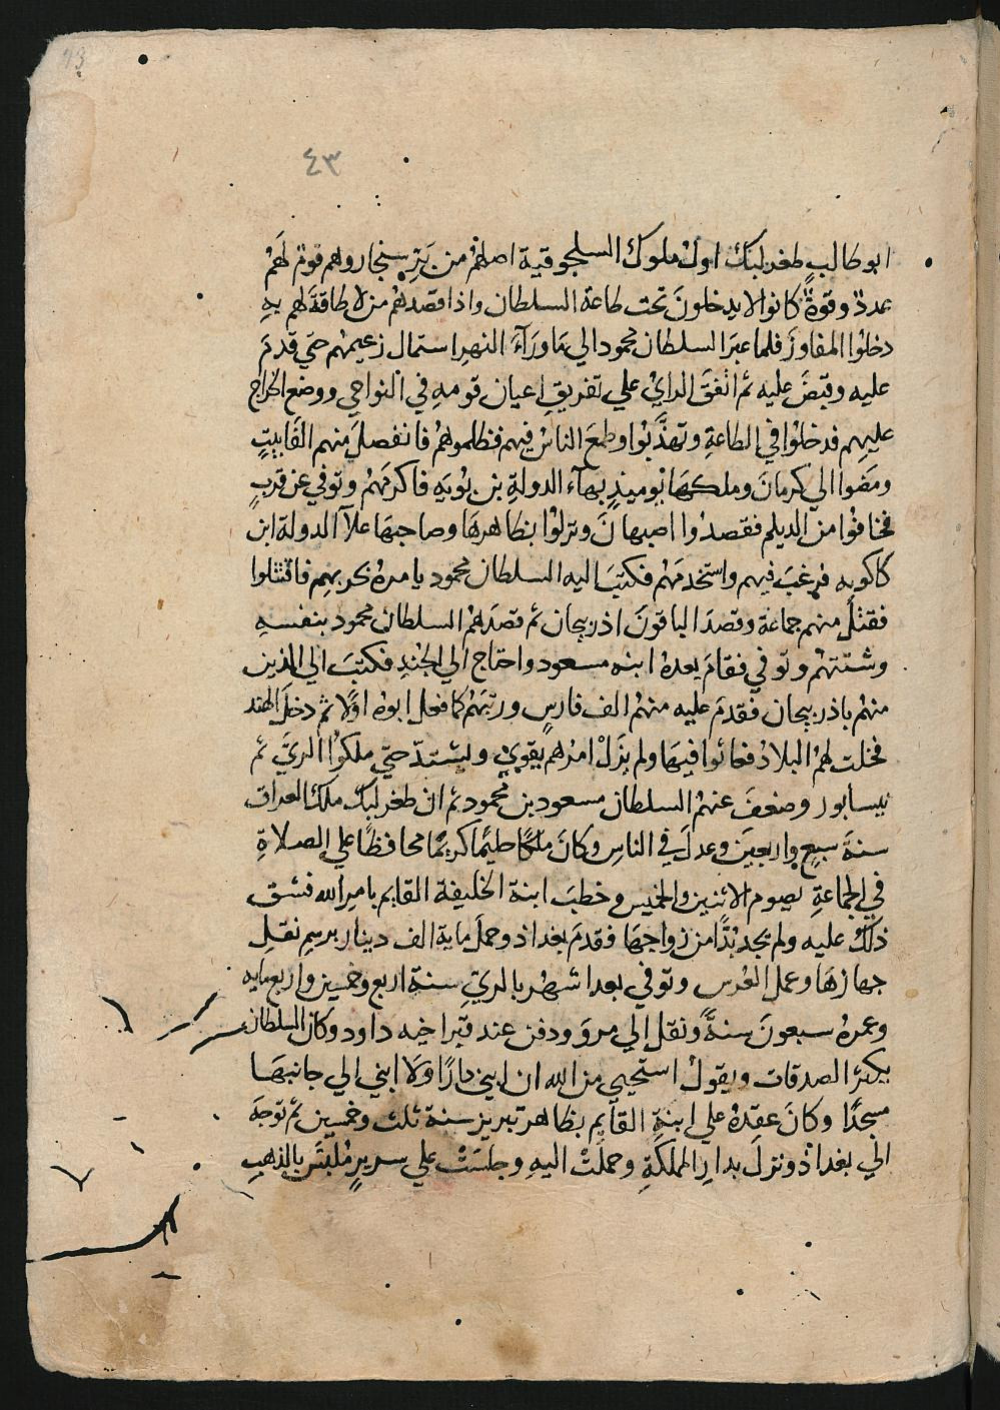 ٤٣
ابو طالب طغرلبك اول ملوك السلجوقية اصلهُم من بَرِّ سنجار وهم قومٌ لَهُمْ
عدةٌ وقوةٌ كانوا لا يدخلونَ تحت طاعة السلطان واذا قصدهُم من لا طاقةَ لهم بهِ
دخلوُا المفاوزَ فلما عبرَ السلطان محمود الي مَا ورَآءَ النهرِ استمال زعيمهُم حتي قدمَ
عليه وقبضَ عليه ثم اتفقَ الرايُ علي تفريقِ اعيان قومهِ في النواحي ووضع الخراج
عليهِم فدخلوُا في الطاعةِ وتهذَّبوُا وطمعَ الناسُ فيهم فظلموهُمْ فانفصلَ منهم الفَا بيتٍ
ومَضوا الي كرمانَ وملكهَا يوميذٍ بهآء الدولةِ بن بُويَهِ فاكرمَهُمْ وتوفي عن قربٍ
فخافوُا من الديلم فقصدُوا اصبهانَ ونزلوُا بظاهرهَا وصاحبهَا علآ الدولة ابن
كاكويه فرغبَ فيهم واستخدمَهُم فكتبَ اليه السلطان محمود يامرهُ بحربهِم فاقتتلوا
فقتلُ منهم جماعة وقصدَ الباقونَ اذربيجان ثم قصدَهُم السلطان محمود بنفسهِ
وشتتهُم وتوفي فقامَ بعدهُ ابنه مسعود واحتاج الي الجُندِ فكتبَ الي الذين
منهُم باذربيجان فقدمَ عليه منهُم الف فارسٍ ورتبَهُم كما فعل ابوهُ اوّلًا ثم دخلَ الهند
فخلت لهُم البلادُ فعاثوا فيهَا ولم يزَلْ امرُهم يقوي ويشتدّ حتي ملكوُا الريَّ ثم
نيسابور وضعفَ عنهُم السلطان مسعود بن محمود ثم ان طغرلبك ملك العراق
سنةَ سبعٍ واربعينَ وعدلَ في الناسِ وكانَ ملكًا حليمًا كريمًا محافظًا علي الصلاةِ
في الجماعةِ يصوم الاثنين والخميس وخطبَ ابنة الخليفة القايم بامر الله فشق
ذلكَ عليه ولم يجد بُدًّا من زواجهَا فقدمَ بغداذ وحملَ ماية الف دينار برسمِ نقلِ
جهازهَا وعمل العُرس وتوفي بعد اشهُر بالريّ سنة اربع وخمسين واربعمايه
وعمرهُ سبعونَ سنةً ونقل الي مروَ ودفن عند قبر اخيه داود وكان السلطان
يكثر الصدقات ويقولُ استحيي من الله ان ابني دارًا ولا ابني الي جانبهَا
مسجدًا وكانَ عقدهُ علي ابنةِ القايم بظاهر تبريز سنة ثلث وخمسين ثم توجهَ
الي بغداذ ونزلَ بدارِ المملكةِ وحملتْ اليهِ وجلسَتْ علي سريرٍ مُلبسٍ بالذهبِ